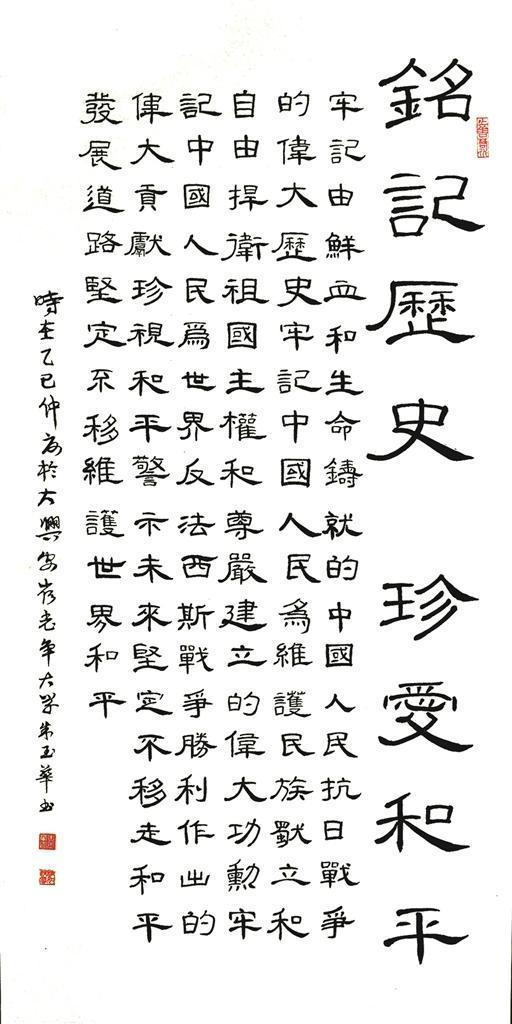 銘記歷史 珍愛和平
牢記由鮮血和生命鑄就的中國人民抗日戰爭
的偉大歷史牢記中國人民為維護民族獨立和
自由捍衛祖國主權和尊嚴建立的偉大功勳牢
記中國人民爲世界反法西斯戰爭勝利作出的
偉大貢獻珍視和平警示未來堅定不移走和平
發展道路堅定不移維護世界和平
時在乙巳仲夏於大興安嶺老年大學朱玉華書